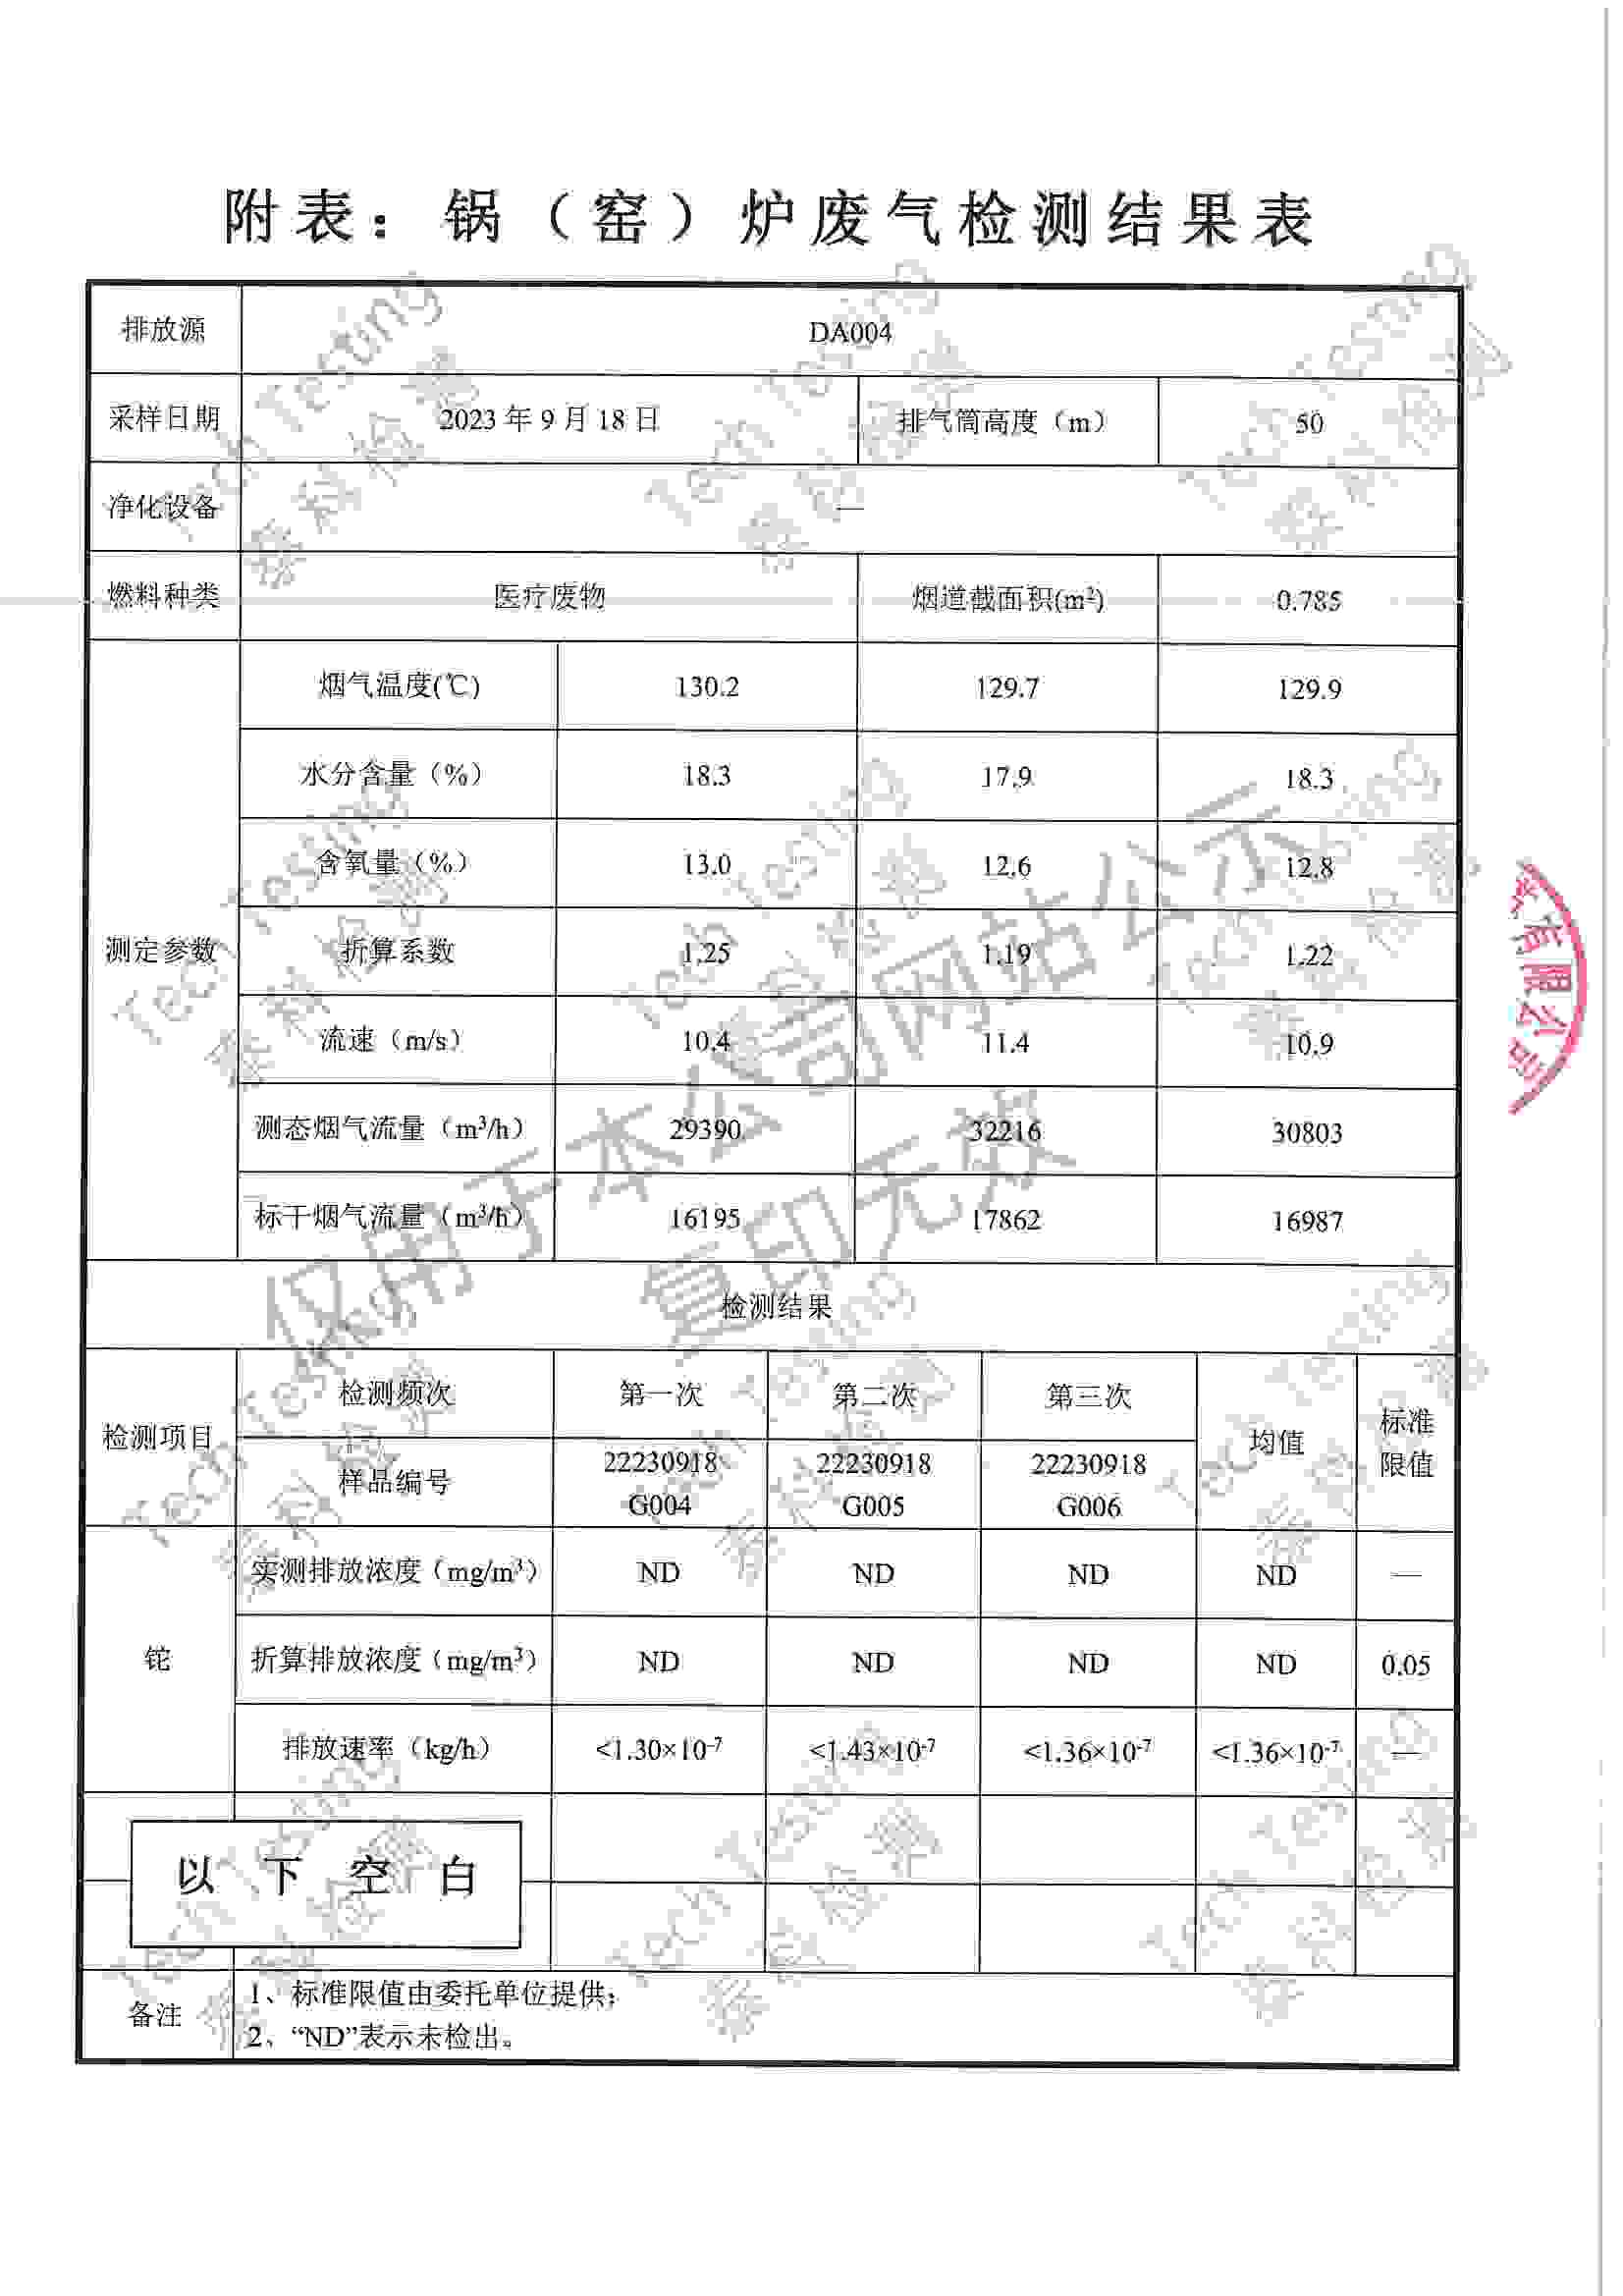 附表：锅（窑）炉废气检测结果表
排放源 DA004
采样日期 2023 年 9 月 18 日 排气筒高度（m） 50
净化设备 —
燃料种类 医疗废物 烟道截面积(m²) 0.785
测定参数
烟气温度(℃) 130.2 129.7 129.9
水分含量（%） 18.3 17.9 18.3
含氧量（%） 13.0 12.6 12.8
折算系数 1.25 1.19 1.22
流速（m/s） 10.4 11.4 10.9
测态烟气流量（m³/h） 29390 32216 30803
标干烟气流量（m³/h） 16195 17862 16987
检测结果
检测项目 检测频次 第一次 第二次 第三次 均值 标准限值
样品编号 22230918 22230918 22230918
G004 G005 G006
铊
实测排放浓度（mg/m³） ND ND ND ND —
折算排放浓度（mg/m³） ND ND ND ND 0.05
排放速率（kg/h） <1.30×10⁻⁷ <1.43×10⁻⁷ <1.36×10⁻⁷ <1.36×10⁻⁷ —
以下空白
备注
1、标准限值由委托单位提供；
2、“ND”表示未检出。
仅用于本公司网站公示
复印无效
Tech Testing
泰科检测
有限公司